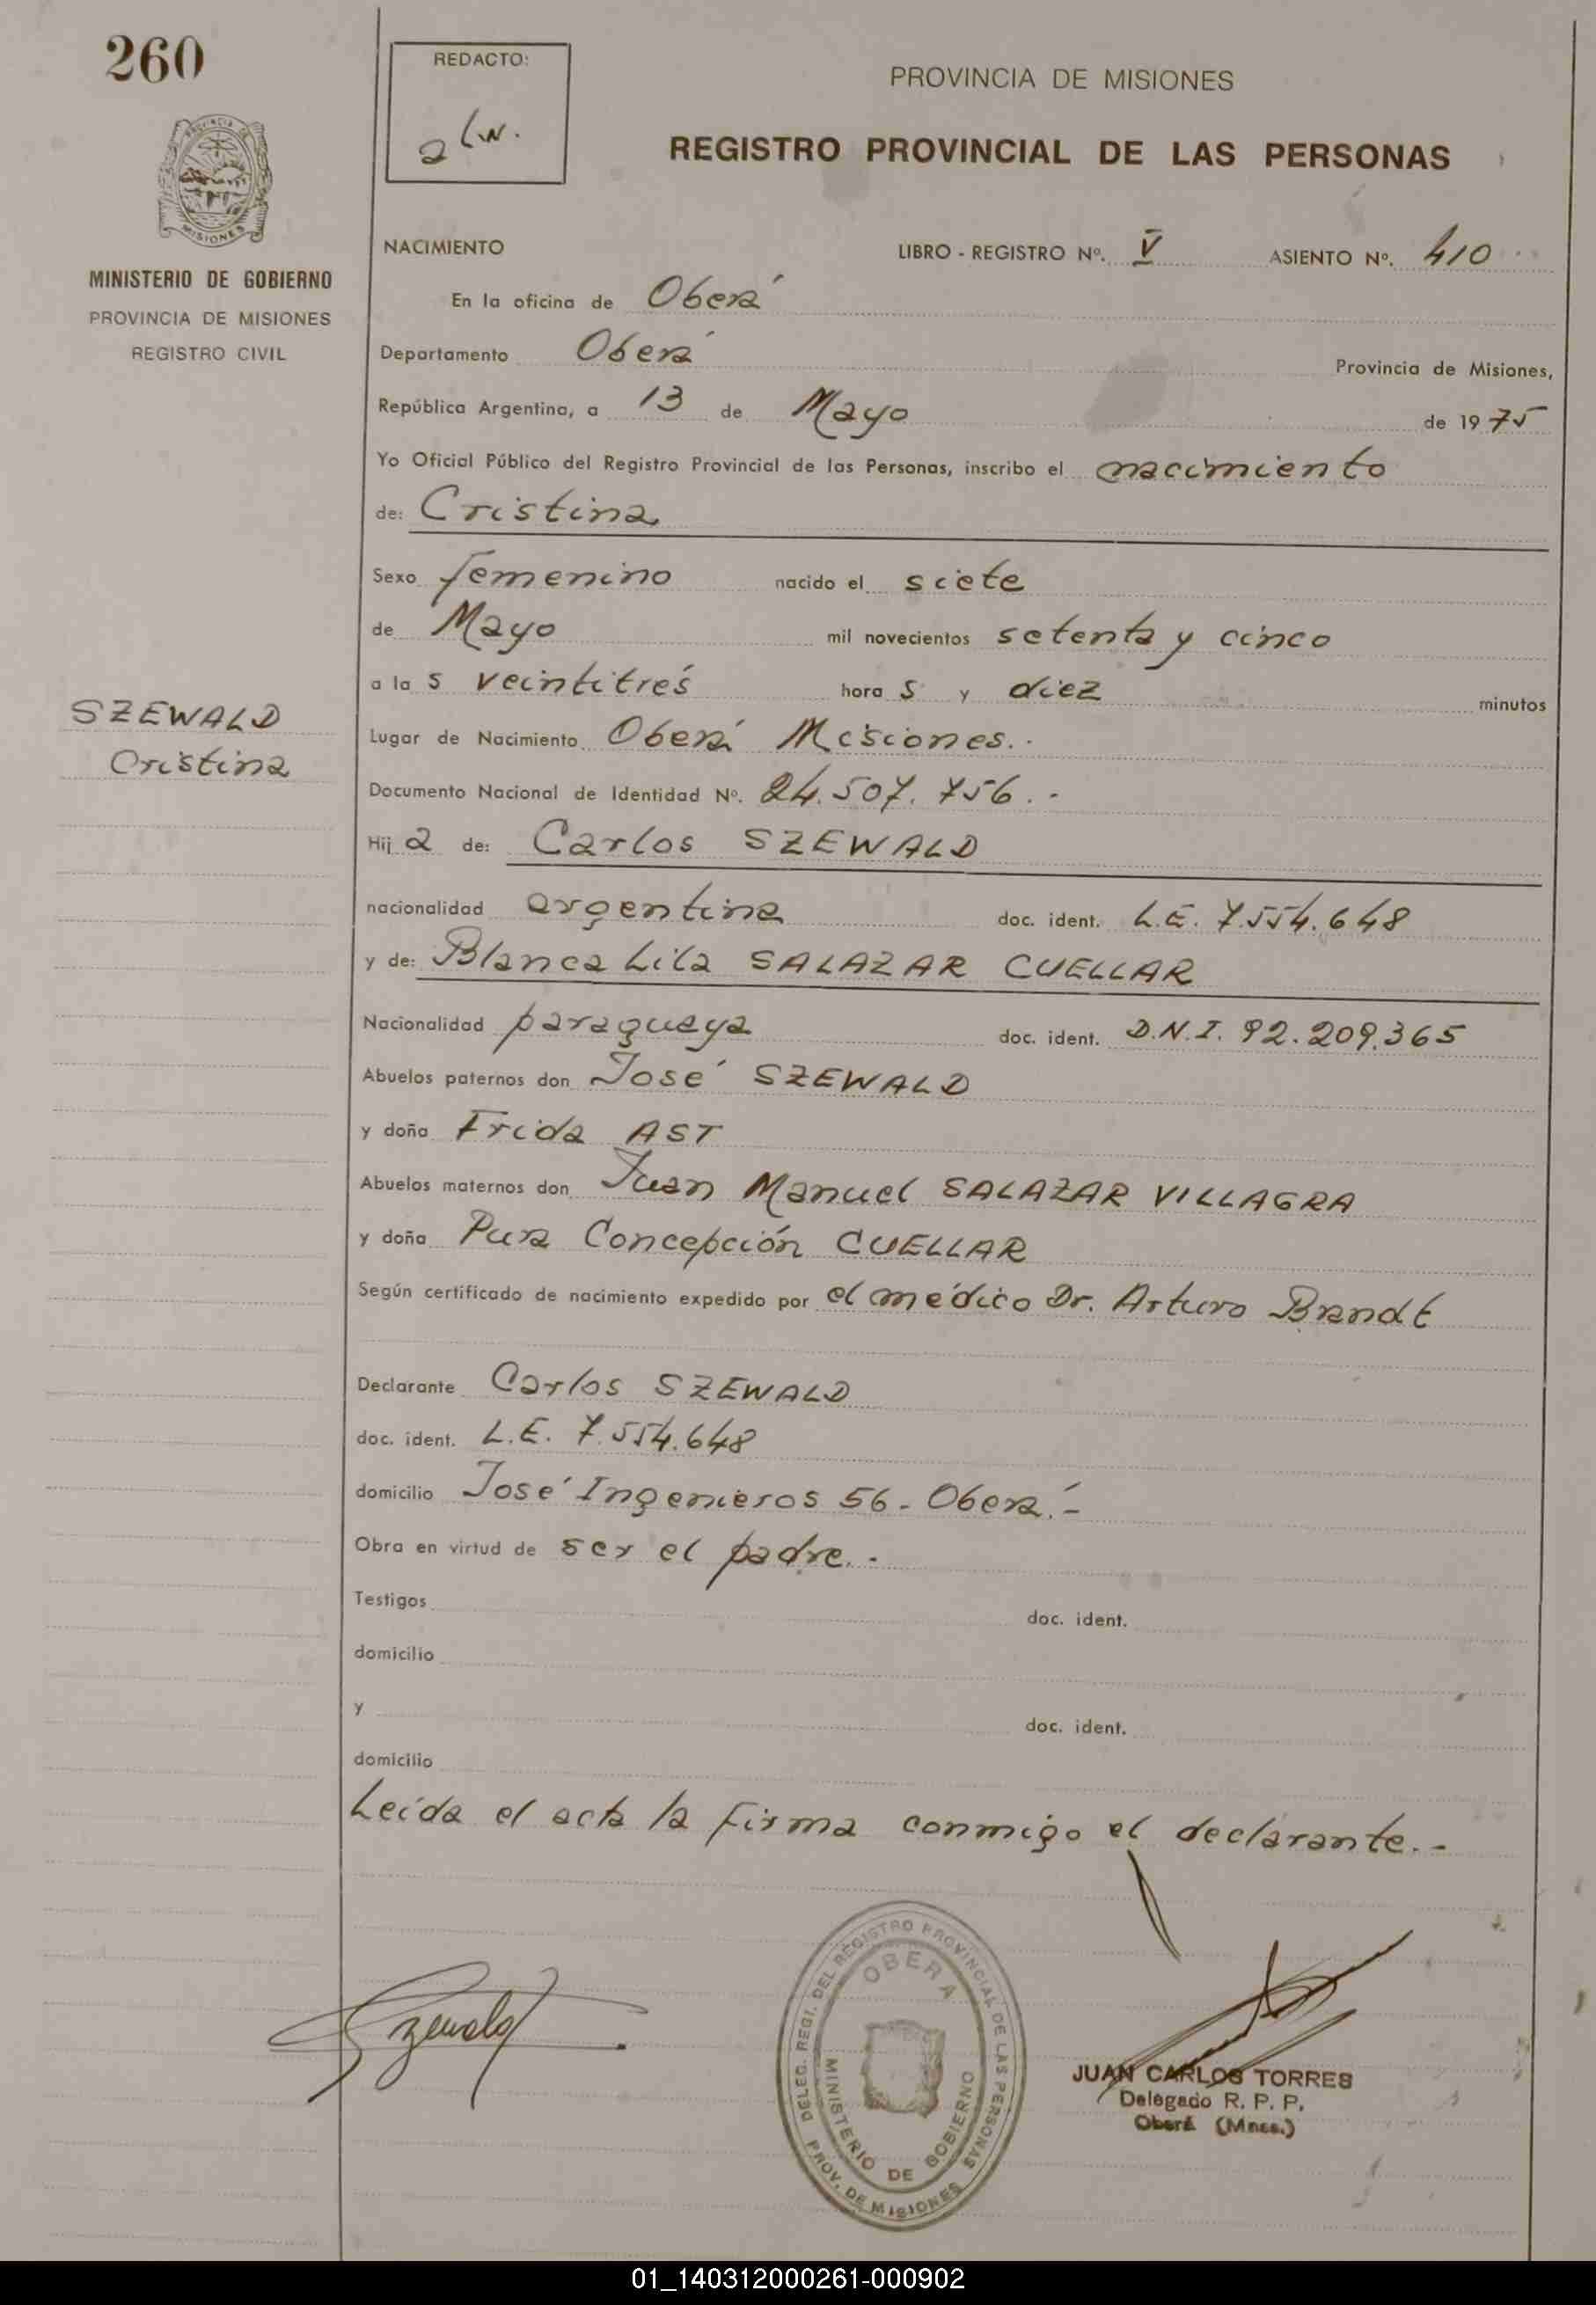 260
REDACTO:
PROVINCIA DE MISIONES
REGISTRO PROVINCIAL DE LAS PERSONAS
PROVINCIA DE
MISIONES
MINISTERIO DE GOBIERNO
PROVINCIA DE MISIONES
REGISTRO CIVIL
NACIMIENTO LIBRO - REGISTRO Nº. V ASIENTO Nº. 410
En la oficina de Oberá
Departamento Oberá Provincia de Misiones,
República Argentina, a 13 de Mayo de 1975
Yo Oficial Público del Registro Provincial de las Personas, inscribo el nacimiento
de: Cristina
Sexo femenino nacido el siete
de Mayo mil novecientos setenta y cinco
a la s veintitrés hora s y diez minutos
SZEWALD
Cristina
Lugar de Nacimiento Oberá Misiones.-
Documento Nacional de Identidad Nº. 24.507.756.-
Hij a de: Carlos SZEWALD
nacionalidad argentina doc. ident. L.E. 7.554.648
y de: Blanca Lila SALAZAR CUELLAR
Nacionalidad paraguaya doc. ident. D.N.I. 92.209.365
Abuelos paternos don José SZEWALD
y doña Frida AST
Abuelos maternos don Juan Manuel SALAZAR VILLAGRA
y doña Pura Concepción CUELLAR
Según certificado de nacimiento expedido por el médico Dr. Arturo Brandt
Declarante Carlos SZEWALD
doc. ident. L.E. 7.554.648
domicilio José Ingenieros 56 - Oberá.-
Obra en virtud de ser el padre.-
Testigos doc. ident.
domicilio
y doc. ident.
domicilio
Leída el acta la firma conmigo el declarante.-
Szewald
DELEG. REGI. DEL REGISTRO PROVINCIAL DE LAS PERSONAS
OBERA
MINISTERIO DE GOBIERNO
PROV. DE MISIONES
JUAN CARLOS TORRES
Delegado R. P. P.
Oberá (Mnes.)
01_140312000261-000902